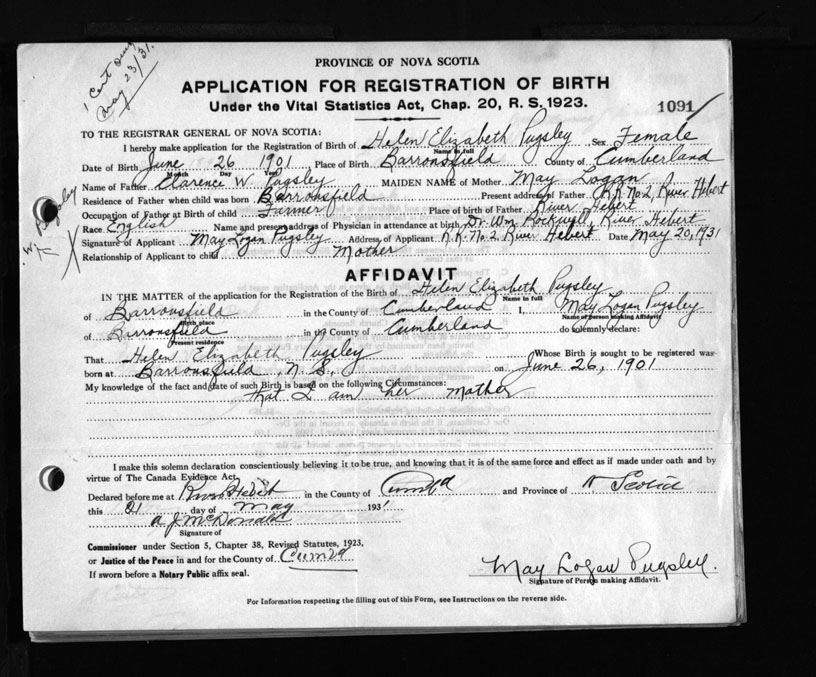 PROVINCE OF NOVA SCOTIA
APPLICATION FOR REGISTRATION OF BIRTH
Under the Vital Statistics Act, Chap. 20, R. S. 1923.
May 23/31.
1091
TO THE REGISTRAR GENERAL OF NOVA SCOTIA:
I hereby make application for the Registration of Birth of Helen Elizabeth Pugsley Sex Female
Name in full
Date of Birth June 26 1901 Place of Birth Barronsfield County of Cumberland
Month Day Year
Name of Father Clarence W. Pugsley MAIDEN NAME of Mother May Logan
Residence of Father when child was born Barronsfield Present address of Father R.R. No. 2, River Hebert
Occupation of Father at Birth of child Farmer Place of birth of Father River Hebert
Race English Name and present address of Physician in attendance at birth Dr. Wm. Rockwell, River Hebert
Signature of Applicant May Logan Pugsley Address of Applicant R.R. No. 2, River Hebert Date May 20, 1931
Relationship of Applicant to child Mother
AFFIDAVIT
IN THE MATTER of the application for the Registration of the Birth of Helen Elizabeth Pugsley
Name in full
of Barronsfield in the County of Cumberland I, May Logan Pugsley
Birth place Name of Person making Affidavit
of Barronsfield in the County of Cumberland do solemnly declare:
Present residence
That Helen Elizabeth Pugsley Whose Birth is sought to be registered was
born at Barronsfield, N. S., on June 26, 1901
My knowledge of the fact and date of such Birth is based on the following Circumstances:
that I am her mother
I make this solemn declaration conscientiously believing it to be true, and knowing that it is of the same force and effect as if made under oath and by
virtue of The Canada Evidence Act.
Declared before me at River Hebert in the County of Cumb'd and Province of N Scotia
this 21 day of May 1931
A J McDonald
Signature of
Commissioner under Section 5, Chapter 38, Revised Statutes, 1923,
or Justice of the Peace in and for the County of Cumb'd
If sworn before a Notary Public affix seal.
May Logan Pugsley.
Signature of Person making Affidavit.
For Information respecting the filling out of this Form, see Instructions on the reverse side.